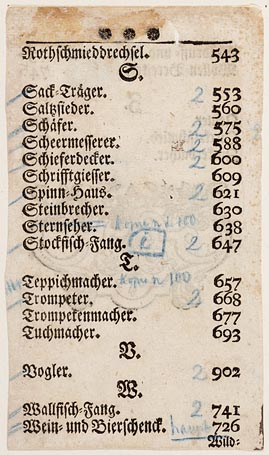 Rothschmieddrechsel. 543
S.
Sack-Träger. 2 553
Saltzsieder. 560
Schäfer. 2 575
Scheermesserer. 2 588
Schieferdecker. 2 600
Schrifftgiesser. 609
Spinn-Haus. 2 621
Steinbrecher. 630
Sternseher. 638
Stockfisch-Fang. 2 647
T.
Teppichmacher. 657
Trompeter. 2 668
Trompetenmacher. 677
Tuchmacher. 693
V.
Vogler. 2 902
W.
Wallfisch-Fang. 2 741
Wein- und Bierschenck. 726
Wild-